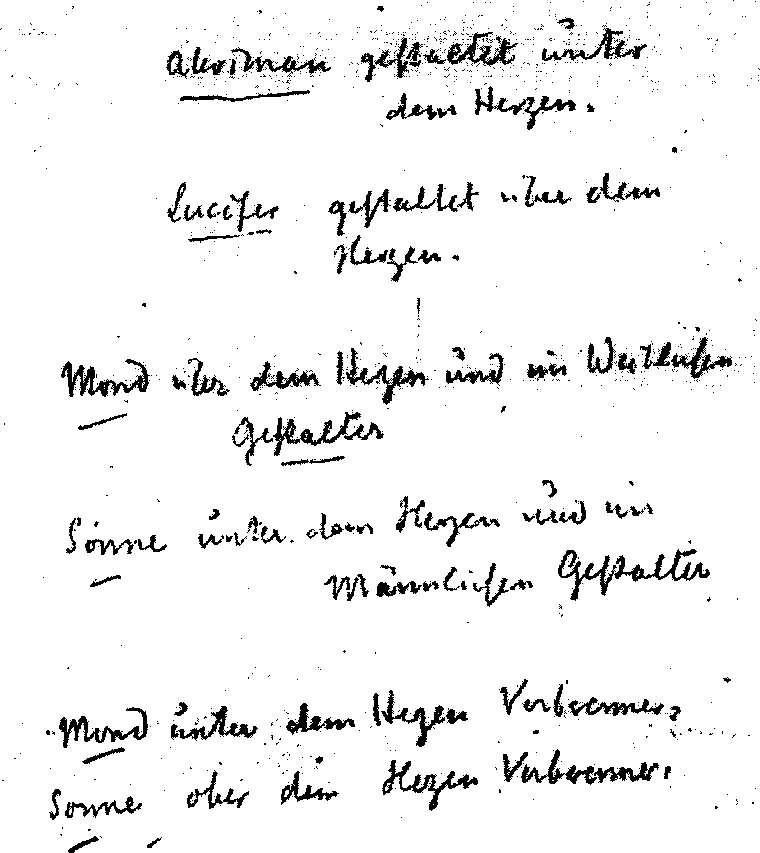 Ahriman gestaltet unter
dem Herzen.
Lucifer gestaltet über dem
Herzen.
Mond über dem Herzen und im Weiblichen
Gestalter
Sonne unter dem Herzen und im
Männlichen Gestalter
Mond unter dem Herzen Verbrenner,
Sonne ober dem Herzen Verbrenner.